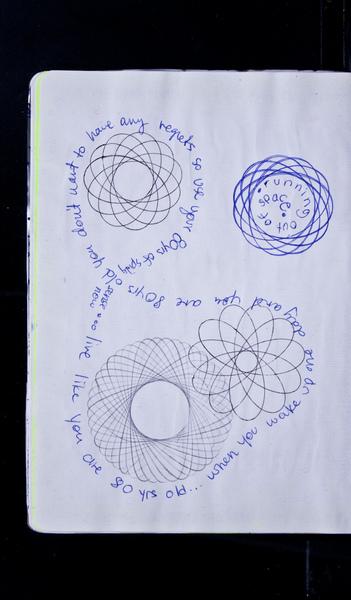 live like you are 80 yrs old... when you wake up one day and you are 80yrs old you dont want to have any regrets so use your 80yrs of
now
running out of space